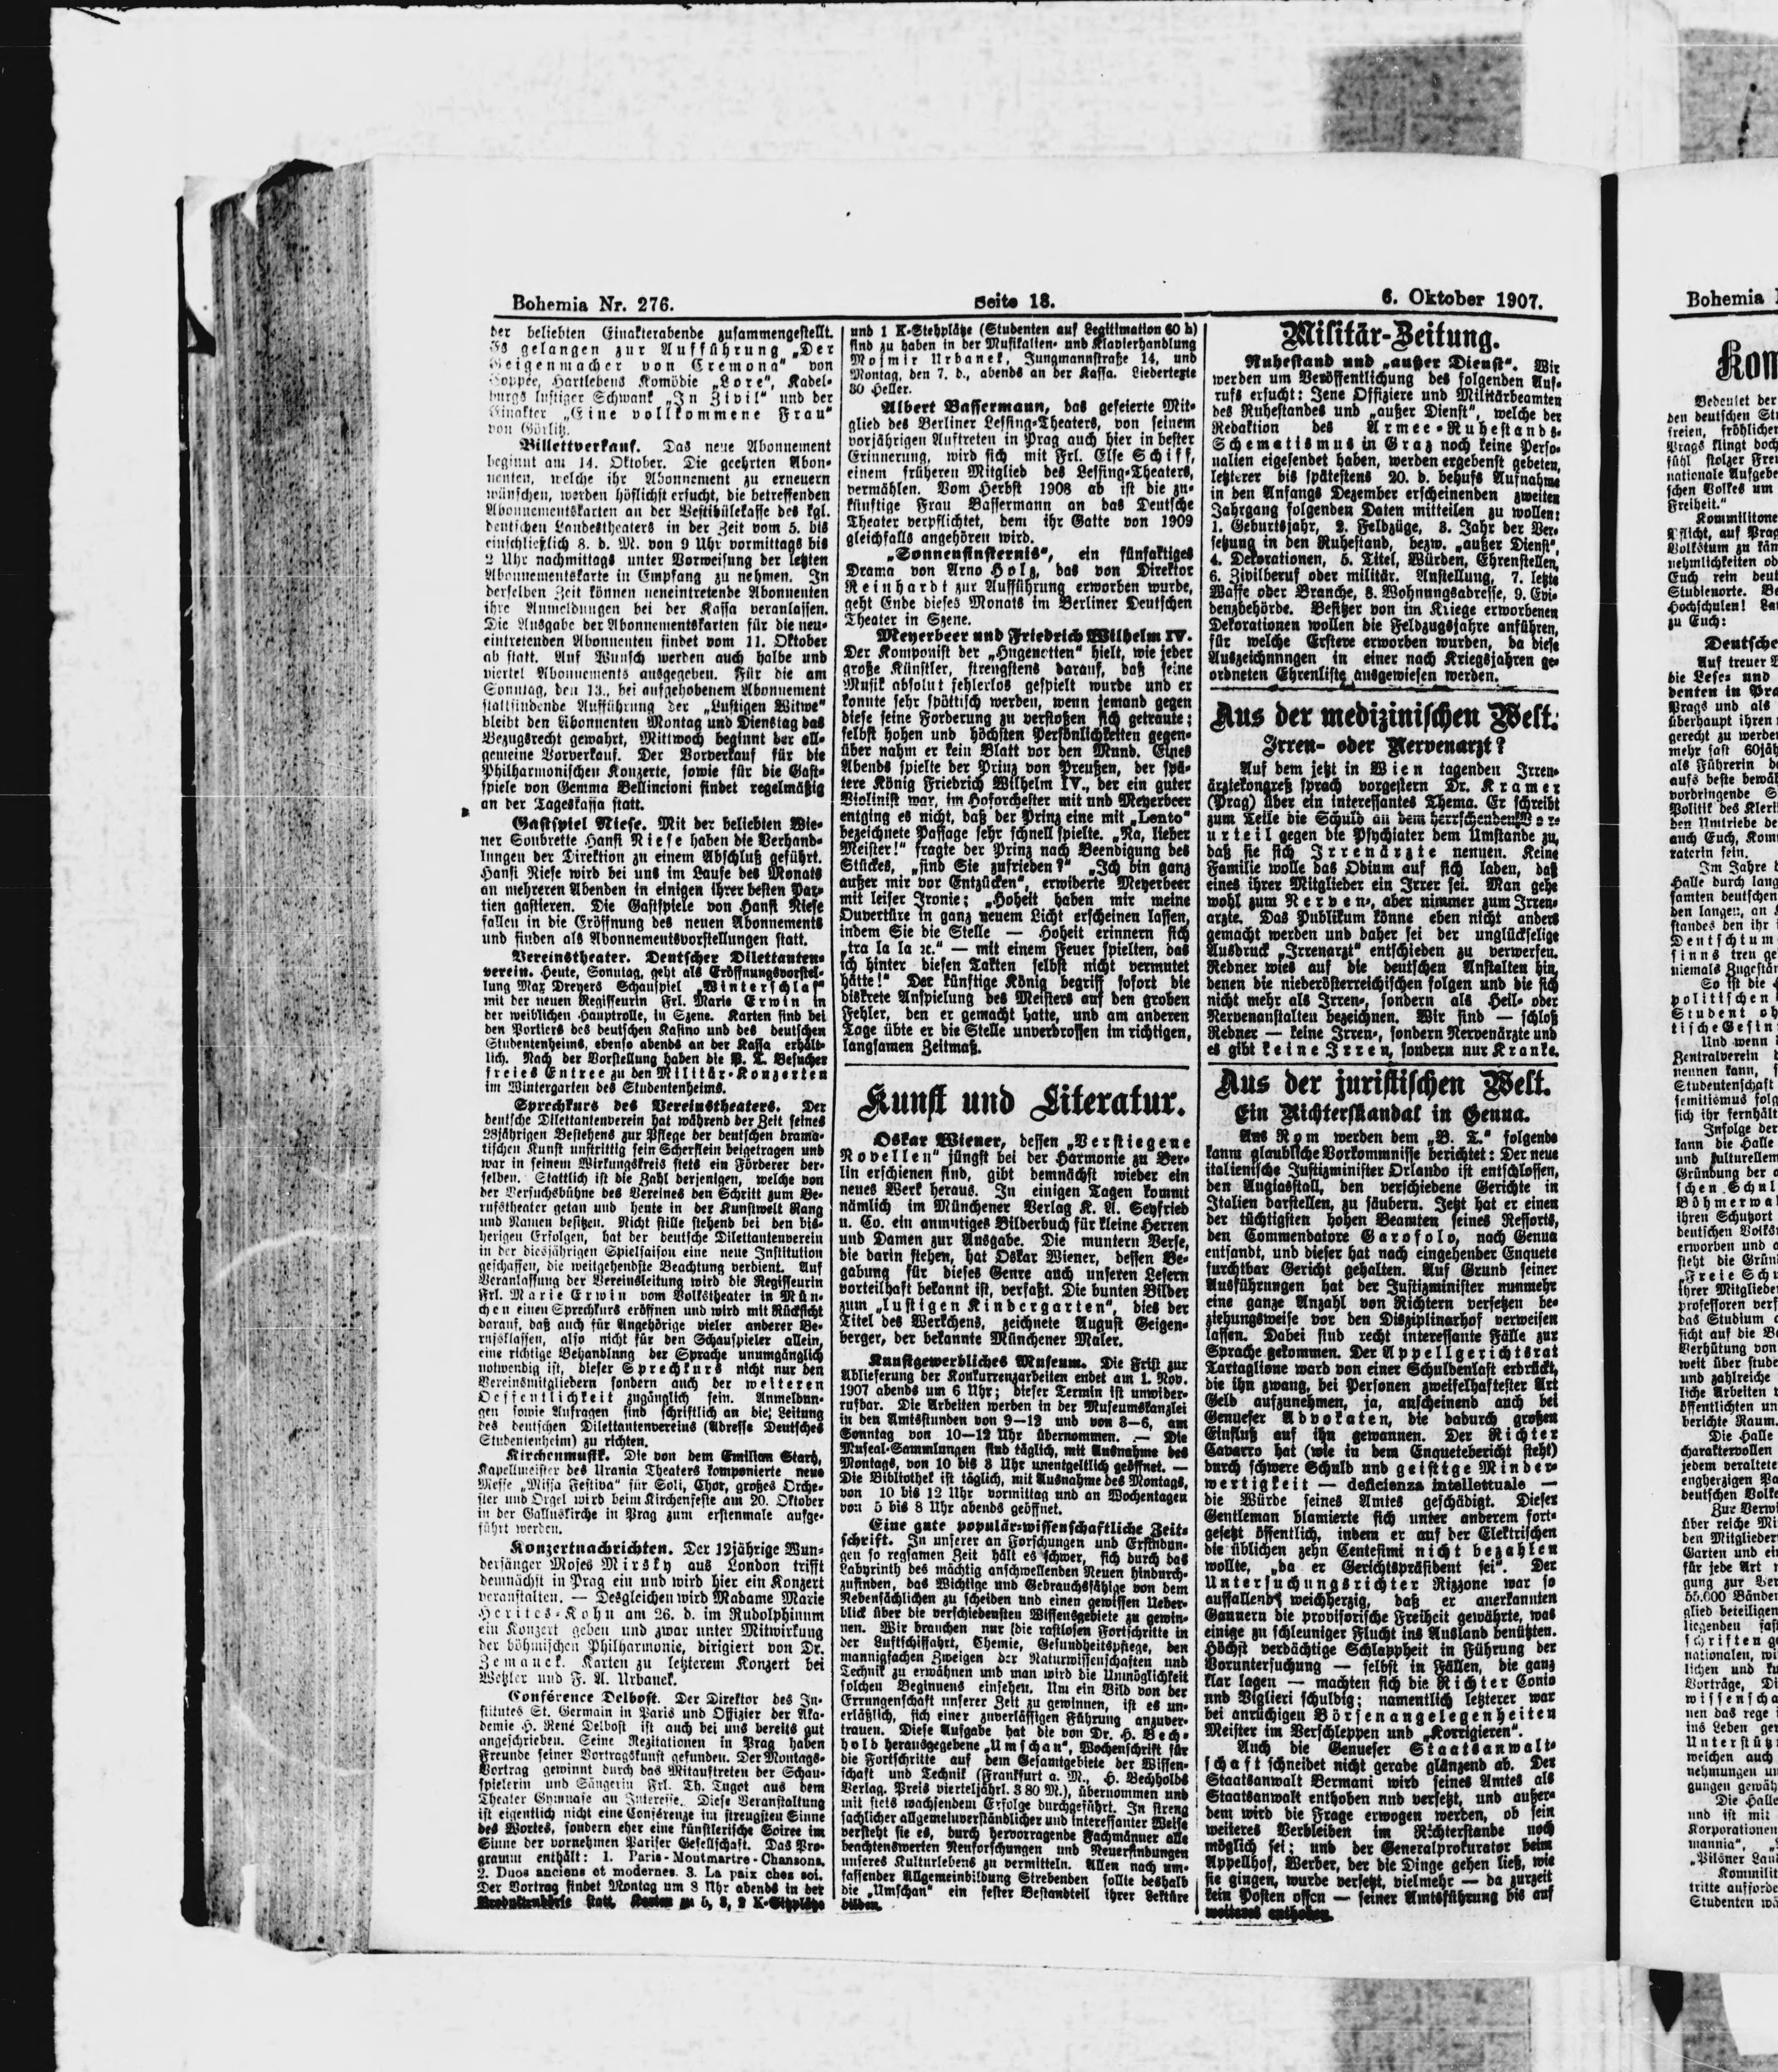 Bohemia Nr. 276.
Seite 18.
6. Oktober 1907.
der beliebten Einakterabende zusammengestellt.
Es gelangen zur Aufführung „Der
Geigenmacher von Cremona" von
Coppée, Hartlebens Komödie „Lore", Kadel-
burgs lustiger Schwank „In Zivil" und der
Einakter „Eine vollkommene Frau"
von Görlitz.
Billettverkauf. Das neue Abonnement
beginnt am 14. Oktober. Die geehrten Abon-
nenten, welche ihr Abonnement zu erneuern
wünschen, werden höflichst ersucht, die betreffenden
Abonnementskarten an der Vestibülekasse des kgl.
deutschen Landestheaters in der Zeit vom 5. bis
einschließlich 8. d. M. von 9 Uhr vormittags bis
2 Uhr nachmittags unter Vorweisung der letzten
Abonnementskarte in Empfang zu nehmen. In
derselben Zeit können neueintretende Abonnenten
ihre Anmeldungen bei der Kassa veranlassen.
Die Ausgabe der Abonnementskarten für die neu-
eintretenden Abonnenten findet vom 11. Oktober
ab statt. Auf Wunsch werden auch halbe und
viertel Abonnements ausgegeben. Für die am
Sonntag, den 13., bei aufgehobenem Abonnement
stattfindende Aufführung der „Lustigen Witwe"
bleibt den Abonnenten Montag und Dienstag das
Bezugsrecht gewahrt, Mittwoch beginnt der all-
gemeine Vorverkauf. Der Vorverkauf für die
Philharmonischen Konzerte, sowie für die Gast-
spiele von Gemma Bellincioni findet regelmäßig
an der Tageskassa statt.
Gastspiel Niese. Mit der beliebten Wie-
ner Soubrette Hansi Niese haben die Verhand-
lungen der Direktion zu einem Abschluß geführt.
Hansi Niese wird bei uns im Laufe des Monats
an mehreren Abenden in einigen ihrer besten Par-
tien gastieren. Die Gastspiele von Hansi Niese
fallen in die Eröffnung des neuen Abonnements
und finden als Abonnementsvorstellungen statt.
Vereinstheater. Deutscher Dilettanten-
verein. Heute, Sonntag, geht als Eröffnungsvorstel-
lung Max Dreyers Schauspiel „Winterschlaf"
mit der neuen Regisseurin Frl. Marie Erwin in
der weiblichen Hauptrolle, in Szene. Karten sind bei
den Portiers des deutschen Kasino und des deutschen
Studentenheims, ebenso abends an der Kassa erhält-
lich. Nach der Vorstellung haben die P. T. Besucher
freies Entree zu den Militär-Konzerten
im Wintergarten des Studentenheims.
Sprechkurs des Vereinstheaters. Der
deutsche Dilettantenverein hat während der Zeit seines
28jährigen Bestehens zur Pflege der deutschen drama-
tischen Kunst unstrittig sein Scherflein beigetragen und
war in seinem Wirkungskreis stets ein Förderer der-
selben. Stattlich ist die Zahl derjenigen, welche von
der Versuchsbühne des Vereines den Schritt zum Be-
rufstheater getan und heute in der Kunstwelt Rang
und Namen besitzen. Nicht stille stehend bei den bis-
herigen Erfolgen, hat der deutsche Dilettantenverein
in der diesjährigen Spielsaison eine neue Institution
geschaffen, die weitgehendste Beachtung verdient. Auf
Veranlassung der Vereinsleitung wird die Regisseurin
Frl. Marie Erwin vom Volkstheater in Mün-
chen einen Sprechkurs eröffnen und wird mit Rücksicht
darauf, daß auch für Angehörige vieler anderer Be-
rufsklassen, also nicht für den Schauspieler allein,
eine richtige Behandlung der Sprache unumgänglich
notwendig ist, dieser Sprechkurs nicht nur den
Vereinsmitgliedern sondern auch der weiteren
Oeffentlichkeit zugänglich sein. Anmeldun-
gen sowie Anfragen sind schriftlich an die Leitung
des deutschen Dilettantenvereins (Adresse Deutsches
Studentenheim) zu richten.
Kirchenmusik. Die von dem Emilian Starh,
Kapellmeister des Urania Theaters komponierte neue
Messe „Missa Festiva" für Soli, Chor, großes Orche-
ster und Orgel wird beim Kirchenfeste am 20. Oktober
in der Galluskirche in Prag zum erstenmale aufge-
führt werden.
Konzertnachrichten. Der 12jährige Wun-
dersänger Moses Mirsky aus London trifft
demnächst in Prag ein und wird hier ein Konzert
veranstalten. — Desgleichen wird Madame Marie
Herites-Kohn am 26. d. im Rudolphinum
ein Konzert geben und zwar unter Mitwirkung
der böhmischen Philharmonie, dirigiert von Dr.
Zemanek. Karten zu letzterem Konzert bei
Wetzler und F. A. Urbanek.
Conférence Delbost. Der Direktor des In-
stitutes St. Germain in Paris und Offizier der Aka-
demie H. René Delbost ist auch bei uns bereits gut
angeschrieben. Seine Rezitationen in Prag haben
Freunde seiner Vortragskunst gefunden. Der Montags-
Vortrag gewinnt durch das Mitauftreten der Schau-
spielerin und Sängerin Frl. Th. Tugot aus dem
Theater Gymnase an Interesse. Diese Veranstaltung
ist eigentlich nicht eine Conférenze im strengsten Sinne
des Wortes, sondern eher eine künstlerische Soiree im
Sinne der vornehmen Pariser Gesellschaft. Das Pro-
gramm enthält: 1. Paris-Montmartre-Chansons.
2. Duos anciens et modernes. 3. La paix chez soi.
Der Vortrag findet Montag um 8 Uhr abends in der
Produktenbörse statt. Karten zu 5, 3, 2 K-Sitzplätze
und 1 K-Stehplätze (Studenten auf Legitimation 60 h)
sind zu haben in der Musikalien- und Klavierhandlung
Mojmir Urbanek, Jungmannstraße 14, und
Montag, den 7. d., abends an der Kassa. Liedertexte
30 Heller.
Albert Bassermann, das gefeierte Mit-
glied des Berliner Lessing-Theaters, von seinem
vorjährigen Auftreten in Prag auch hier in bester
Erinnerung, wird sich mit Frl. Else Schiff,
einem früheren Mitglied des Lessing-Theaters,
vermählen. Vom Herbst 1908 ab ist die zu-
künftige Frau Bassermann an das Deutsche
Theater verpflichtet, dem ihr Gatte von 1909
gleichfalls angehören wird.
„Sonnenfinsternis", ein fünfaktiges
Drama von Arno Holz, das von Direktor
Reinhardt zur Aufführung erworben wurde,
geht Ende dieses Monats im Berliner Deutschen
Theater in Szene.
Meyerbeer und Friedrich Wilhelm IV.
Der Komponist der „Hugenotten" hielt, wie jeder
große Künstler, strengstens darauf, daß seine
Musik absolut fehlerlos gespielt wurde und er
konnte sehr spöttisch werden, wenn jemand gegen
diese seine Forderung zu verstoßen sich getraute;
selbst hohen und höchsten Persönlichkeiten gegen-
über nahm er kein Blatt vor den Mund. Eines
Abends spielte der Prinz von Preußen, der spä-
tere König Friedrich Wilhelm IV., der ein guter
Violinist war, im Hoforchester mit und Meyerbeer
entging es nicht, daß der Prinz eine mit „Lento"
bezeichnete Passage sehr schnell spielte. „Na, lieber
Meister!" fragte der Prinz nach Beendigung des
Stückes, „sind Sie zufrieden?" „Ich bin ganz
außer mir vor Entzücken", erwiderte Meyerbeer
mit leiser Ironie; „Hoheit haben mir meine
Ouvertüre in ganz neuem Licht erscheinen lassen,
indem Sie die Stelle — Hoheit erinnern sich
„tra la la ꝛc." — mit einem Feuer spielten, das
ich hinter diesen Takten selbst nicht vermutet
hätte!" Der künftige König begriff sofort die
diskrete Anspielung des Meisters auf den groben
Fehler, den er gemacht hatte, und am anderen
Tage übte er die Stelle unverdrossen im richtigen,
langsamen Zeitmaß.
Kunst und Literatur.
Oskar Wiener, dessen „Verstiegene
Novellen" jüngst bei der Harmonie zu Ber-
lin erschienen sind, gibt demnächst wieder ein
neues Werk heraus. In einigen Tagen kommt
nämlich im Münchener Verlag K. A. Seyfried
u. Co. ein anmutiges Bilderbuch für kleine Herren
und Damen zur Ausgabe. Die muntern Verse,
die darin stehen, hat Oskar Wiener, dessen Be-
gabung für dieses Genre auch unseren Lesern
vorteilhaft bekannt ist, verfaßt. Die bunten Bilder
zum „lustigen Kindergarten", dies der
Titel des Werkchens, zeichnete August Geigen-
berger, der bekannte Münchener Maler.
Kunstgewerbliches Museum. Die Frist zur
Ablieferung der Konkurrenzarbeiten endet am 1. Nov.
1907 abends um 6 Uhr; dieser Termin ist unwider-
rufbar. Die Arbeiten werden in der Museumskanzlei
in den Amtsstunden von 9—12 und von 3—6, am
Sonntag von 10—12 Uhr übernommen. — Die
Museal-Sammlungen sind täglich, mit Ausnahme des
Montags, von 10 bis 3 Uhr unentgeltlich geöffnet. —
Die Bibliothek ist täglich, mit Ausnahme des Montags,
von 10 bis 12 Uhr vormittag und an Wochentagen
von 5 bis 8 Uhr abends geöffnet.
Eine gute populär-wissenschaftliche Zeit-
schrift. In unserer an Forschungen und Erfindun-
gen so regsamen Zeit hält es schwer, sich durch das
Labyrinth des mächtig anschwellenden Neuen hindurch-
zufinden, das Wichtige und Gebrauchsfähige von dem
Nebensächlichen zu scheiden und einen gewissen Ueber-
blick über die verschiedensten Wissensgebiete zu gewin-
nen. Wir brauchen nur die rastlosen Fortschritte in
der Luftschiffahrt, Chemie, Gesundheitspflege, den
mannigfachen Zweigen der Naturwissenschaften und
Technik zu erwähnen und man wird die Unmöglichkeit
solchen Beginnens einsehen. Um ein Bild von der
Errungenschaft unserer Zeit zu gewinnen, ist es un-
erläßlich, sich einer zuverlässigen Führung anzuver-
trauen. Diese Aufgabe hat die von Dr. H. Bech-
hold herausgegebene „Umschau", Wochenschrift für
die Fortschritte auf dem Gesamtgebiete der Wissen-
schaft und Technik (Frankfurt a. M., H. Bechholds
Verlag. Preis vierteljährl. 3 80 M.), übernommen und
mit stets wachsendem Erfolge durchgeführt. In streng
sachlicher allgemeinverständlicher und interessanter Weise
versteht sie es, durch hervorragende Fachmänner alle
beachtenswerten Neuforschungen und Neuerfindungen
unseres Kulturlebens zu vermitteln. Allen nach um-
fassender Allgemeinbildung Strebenden sollte deshalb
die „Umschau" ein fester Bestandteil ihrer Lektüre
bilden.
Militär-Zeitung.
Ruhestand und „außer Dienst". Wir
werden um Veröffentlichung des folgenden Auf-
rufs ersucht: Jene Offiziere und Militärbeamten
des Ruhestandes und „außer Dienst", welche der
Redaktion des Armee-Ruhestands-
Schematismus in Graz noch keine Perso-
nalien eigesendet haben, werden ergebenst gebeten,
letzterer bis spätestens 20. d. behufs Aufnahme
in den Anfangs Dezember erscheinenden zweiten
Jahrgang folgenden Daten mitteilen zu wollen:
1. Geburtsjahr, 2. Feldzüge, 3. Jahr der Ver-
setzung in den Ruhestand, bezw. „außer Dienst",
4. Dekorationen, 5. Titel, Würden, Ehrenstellen,
6. Zivilberuf oder militär. Anstellung, 7. letzte
Waffe oder Branche, 8. Wohnungsadresse, 9. Evi-
denzbehörde. Besitzer von im Kriege erworbenen
Dekorationen wollen die Feldzugsjahre anführen,
für welche Erstere erworben wurden, da diese
Auszeichnungen in einer nach Kriegsjahren ge-
ordneten Ehrenliste ausgewiesen werden.
Aus der medizinischen Welt.
Irren- oder Nervenarzt?
Auf dem jetzt in Wien tagenden Irren-
ärztekongreß sprach vorgestern Dr. Kramer
(Prag) über ein interessantes Thema. Er schreibt
zum Teile die Schuld an dem herrschenden Vor-
urteil gegen die Psychiater dem Umstande zu,
daß sie sich Irrenärzte nennen. Keine
Familie wolle das Odium auf sich laden, daß
eines ihrer Mitglieder ein Irrer sei. Man gehe
wohl zum Nerven-, aber nimmer zum Irren-
arzte. Das Publikum könne eben nicht anders
gemacht werden und daher sei der unglückselige
Ausdruck „Irrenarzt" entschieden zu verwerfen.
Redner wies auf die deutschen Anstalten hin,
denen die niederösterreichischen folgen und die sich
nicht mehr als Irren-, sondern als Heil- oder
Nervenanstalten bezeichnen. Wir sind — schloß
Redner — keine Irren-, sondern Nervenärzte und
es gibt keine Irren, sondern nur Kranke.
Aus der juristischen Welt.
Ein Richterskandal in Genua.
Aus Rom werden dem „B. T." folgende
kaum glaubliche Vorkommnisse berichtet: Der neue
italienische Justizminister Orlando ist entschlossen,
den Augiasstall, den verschiedene Gerichte in
Italien darstellen, zu säubern. Jetzt hat er einen
der tüchtigsten hohen Beamten seines Ressorts,
den Commendatore Garofolo, nach Genua
entsandt, und dieser hat nach eingehender Enquete
furchtbar Gericht gehalten. Auf Grund seiner
Ausführungen hat der Justizminister nunmehr
eine ganze Anzahl von Richtern versetzen be-
ziehungsweise vor den Disziplinarhof verweisen
lassen. Dabei sind recht interessante Fälle zur
Sprache gekommen. Der Appellgerichtsrat
Tartaglione ward von einer Schuldenlast erdrückt,
die ihn zwang, bei Personen zweifelhaftester Art
Geld aufzunehmen, ja, anscheinend auch bei
Genueser Advokaten, die dadurch großen
Einfluß auf ihn gewannen. Der Richter
Cavarro hat (wie in dem Enquetebericht steht)
durch schwere Schuld und geistige Minder-
wertigkeit — deficienza intellettuale —
die Würde seines Amtes geschädigt. Dieser
Gentleman blamierte sich unter anderem fort-
gesetzt öffentlich, indem er auf der Elektrischen
die üblichen zehn Centesimi nicht bezahlen
wollte, „da er Gerichtspräsident sei". Der
Untersuchungsrichter Rizzone war so
auffallend weichherzig, daß er anerkannten
Gaunern die provisorische Freiheit gewährte, was
einige zu schleuniger Flucht ins Ausland benützten.
Höchst verdächtige Schlappheit in Führung der
Voruntersuchung — selbst in Fällen, die ganz
klar lagen — machten sich die Richter Conio
und Viglieri schuldig; namentlich letzterer war
bei anrüchigen Börsenangelegenheiten
Meister im Verschleppen und „Korrigieren".
Auch die Genueser Staatsanwalt-
schaft schneidet nicht gerade glänzend ab. Der
Staatsanwalt Bermani wird seines Amtes als
Staatsanwalt enthoben und versetzt, und außer-
dem wird die Frage erwogen werden, ob sein
weiteres Verbleiben im Richterstande noch
möglich sei; und der Generalprokurator beim
Appellhof, Werber, der die Dinge gehen ließ, wie
sie gingen, wurde versetzt, vielmehr — da zurzeit
kein Posten offen — seiner Amtsführung bis auf
weiteres enthoben.
Bohemia
Kom
Bedeutet der
den deutschen Stu
freien, fröhlicher
Prags klingt doch
fühl stolzer Frei
nationale Aufgebe
schen Volkes um
Freiheit."
Kommilitone
Pflicht, auf Prag
Volkstum zu käm
nehmlichkeiten od
Euch rein deut
Studienorte. Be
Hochschulen! La
zu Euch:
Deutsche
Auf treuer
die Lese- und
denten in Pra
Prags und als
überhaupt ihren
gerecht zu werde
mehr fast 60jäh
als Führerin de
aufs beste bewäh
vordringende S
Politik des Kleri
den Umtriebe de
auch Euch, Kom
raterin sein.
Im Jahre
Halle durch lang
samten deutschen
den langen, an
standes den ihr
Deutschtum
sinns treu ge
niemals Zugestän
So ist die
politischen
Student oh
tische Gesin
Und wenn
Zentralverein
nennen kann,
Studentenschaft
semitismus folg
sich ihr fernhält
Infolge der
kann die Halle
und kulturellem
Gründung der
schen Schul
Böhmerwa
ihren Schutzort
deutschen Volks
erworben und a
steht die Grün
„Freie Schu
ihrer Mitgliede
professoren verf
das Studium
sicht auf die Be
Verhütung von
weit über stude
und zahlreiche
liche Arbeiten
öffentlichten un
berichte Raum.
Die Halle
charaktervollen
jedem veraltete
engherzigen Pa
deutschen Volke
Zur Verwi
über reiche Mi
den Mitglieder
Garten und ei
für jede Art
gung zur Ver
55.000 Bänden
glied beteiligen
liegenden fast
schriften ge
nationalen, wi
lichen und ku
Vorträge, Di
wissenscha
nen das rege
ins Leben ger
Unterstütz
welchen auch
nehmungen un
gungen gewäh
Die Halle
und ist mit
Korporationen
mannia",
„Pilsner Lan
Kommilit
tritte aufforde
Studenten wä